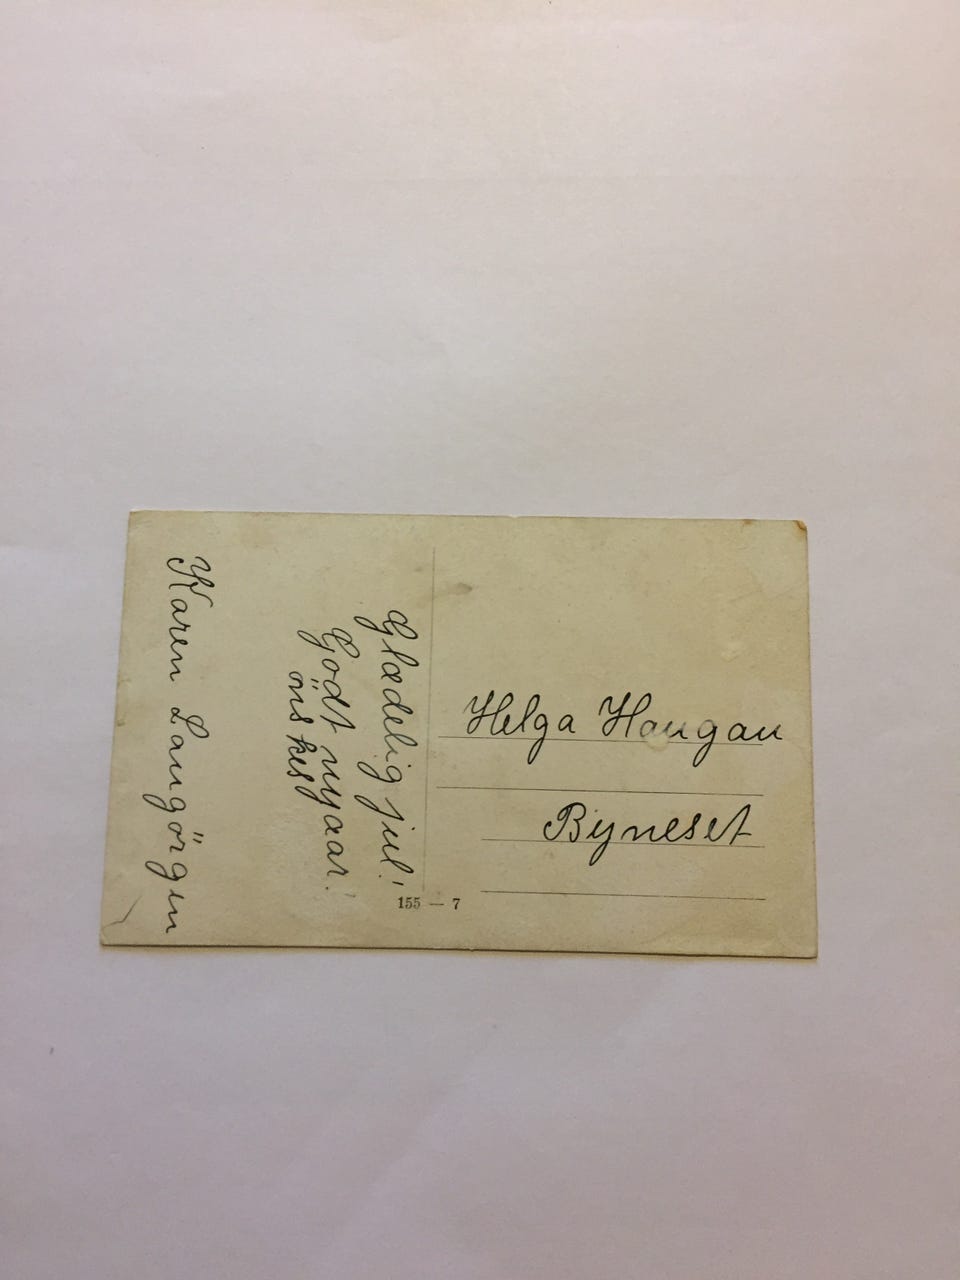 Glædelig jul!
Godt nyaar!
önskes
Karen Langörgen
Helga Haugan
Byneset
155 — 7